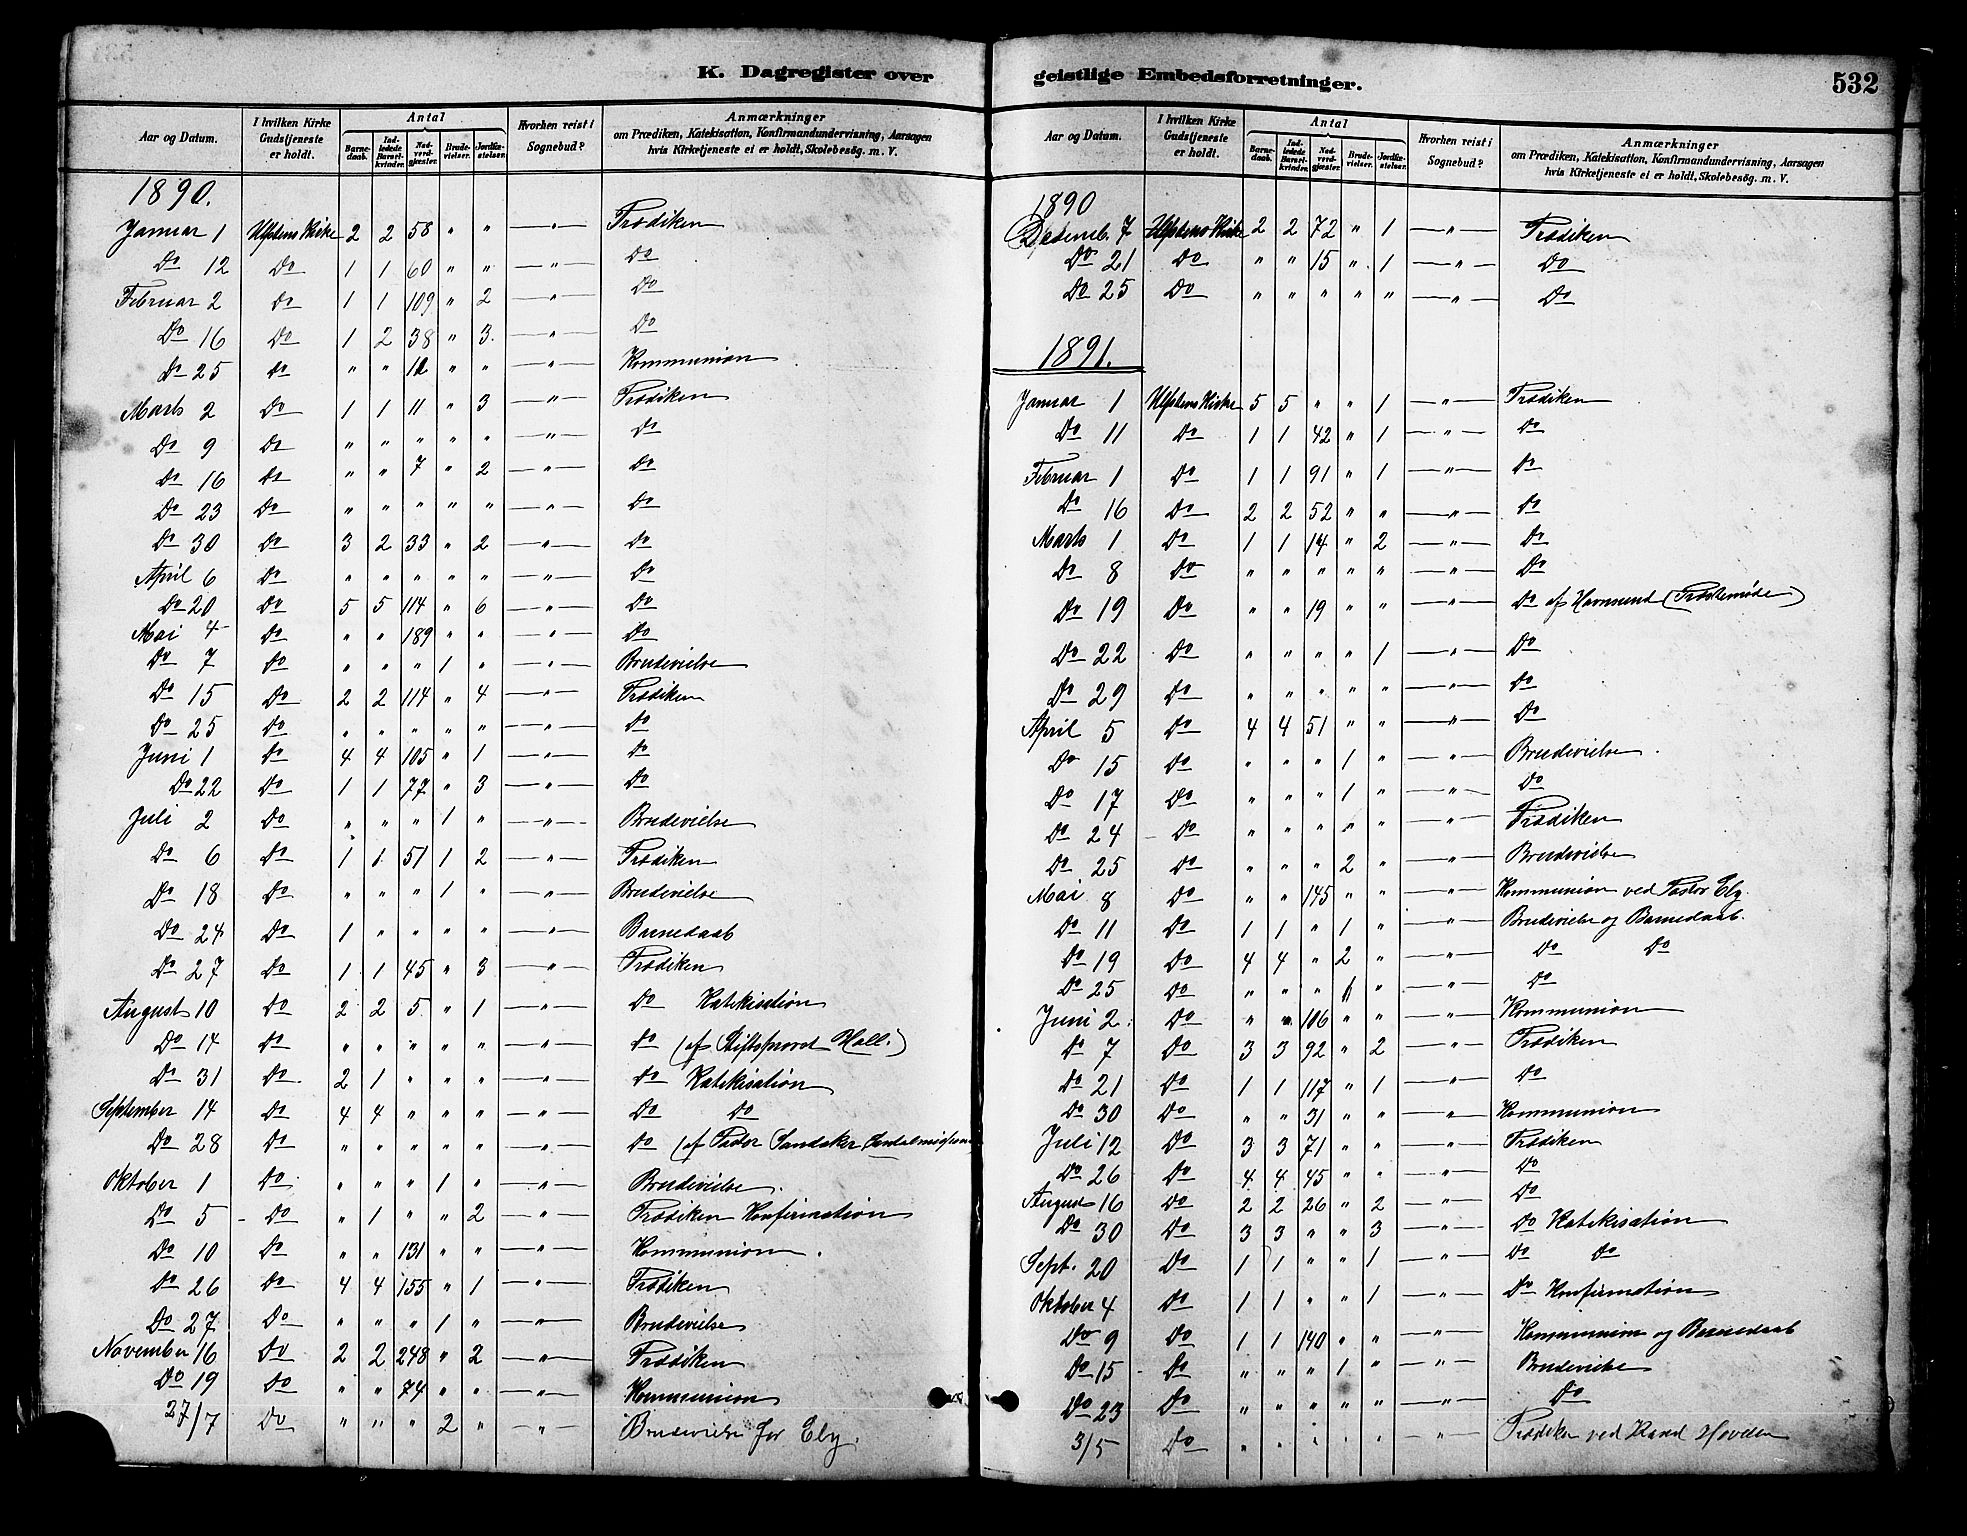 K. Dagregister over
Aar og Datum. | I hvilken Kirke Gudstjeneste er holdt. | Antal | Barnedaab. | Indledede Barselkvinder. | Nadverdgjæster. | Brudevielser. | Jordfæstelser. | Hvorhen reist i Sognebud? | Anmærkninger om Prædiken, Katekisation, Konfirmandundervisning, Aarsagen hvis Kirketjeneste ei er holdt, Skolebesög. m. V.
1890.
Januar 1 Ulstens Kirke 2 2 58 " " — " — Prædiken
Do 12 Do 1 1 60 " " — " — Do
Februar 2 Do 1 1 109 " 2 — " — Do
Do 16 Do 1 2 38 " 3. — " — Do
Do 25 Do " " 12 " " — " — Kommunion
Marts 2 Do 1 1 11 " 3 — " — Prædiken
Do 9 Do " " " " " — " — Do
Do 16 Do " " 7 " 2 — " — Do
Do 23 Do " " " " " — " — Do
Do 30 Do 3 2 33 " 2 — " — Do
April 6 Do " " " " " — " — Do
Do 20 Do 5 5 114 " 6 — " — Do
Mai 4 Do " " 189 " " — " — Do
Do 7 Do " " " 1 " — " — Brudevielse
Do 15 Do 2 2 114 " 4 — " — Prædiken
Do 25 Do " " " " " — " — Do
Juni 1 Do 4 4 105 " 1 — " — Do
Do 22 Do 1 1 77 " 3 — " — Do
Juli 2 Do " " " 1 " — " — Brudevielse
Do 6 Do 1 1. 51 1 2 — " — Prædiken
Do 18 Do " " " 1 " — " — Brudevielse
Do 24 Do 1 " " " " — " — Barnedaab
Do 27 Do 1 1 45 " 3 — " — Prædiken
August 10 Do 2 2 5 " 1 — " — Do Katekisation
Do 14 Do " " " " " — " — Do (af Stiftsprovst Hall.)
Do 31 Do 2 1 " " " — " — Do Katekisation
September 14 Do 4 4 " " " — " — Do Do
Do 28 Do " " " " " — " — Do (af Pastor Sandaker
Oktober 1 Do " " " 1 " — " — Brudevielse.
Do 5 Do " 1 " " 2 — " — Prædiken Konfirmation
Do 10 Do " " 131 " " — " — Kommunion.
Do 26 Do 4 4 155 " 1 — " — Prædiken
Do 27 Do " " " 1 " — " — Brudevielse
November 16 Do 2 2 248 " 2 — " — Prædiken
Do 19 Do " " 74 " " — " — Kommunion
27/7 Do " " " 2 " — " — Brudevielse for Eby.
geistlige Embedsforretninger. 532
Aar og Datum. | I hvilken Kirke Gudstjeneste er holdt. | Antal | Barnedaab. | Indledede Barselkvinder. | Nadverdgjæster. | Brudevielser. | Jordfæstelser. | Hvorhen reist i Sognebud? | Anmærkninger om Prædiken, Katekisation, Konfirmandundervisning, Aarsagen hvis Kirketjeneste ei er holdt, Skolebesög. m. V.
1890
Desemb. 7 Ulstens Kirke 2 2 72 " 1 — " — Prædiken
Do 21 Do " " 15 " 1 — " — Do
Do 25 Do " " " " " — " — Do
1891.
Januar 1 Ulstens Kirke 5 5 " " 1 — " — Prædiken
Do 11 Do 1 1 42 " 1 — " — Do
Februar 1 Do 1 1 91 " 1 — " — Do
Do 16 Do 2 2 52 " " — " — Do
Marts 1 Do 1 1 14 " 2 — " — Do
Do 8 Do " " " " " — " — Do
Do 19 Do " " 19 " " — " — Do af (Prøstemøde)
Do 22 Do " " " " 1 — " — Do
Do 29 Do " " " " " — " — Do
April 5 Do 4 4 51 " " — " — Do
Do 15 Do " " " 1 " — " — Brudevielse.
Do 17 Do " " " 1 " — " — Do
Do 24 Do " " " " " — " — Prædiken
Do 25 Do " " " 2 " — " — Brudevielse
Mai 8 Do " " 145 " " — " — Kommunion ved Pastor Eby
Do 11 Do 1 1 " 1 " — " — Brudevielse og Barnedaab.
Do 19 Do 4 4 " 2 " — " — Do Do
Do 25 Do " " " 1 " — " — Do
Juni 2. Do " " 106 " " — " — Kommunion
Do 7 Do 3 3 92 " 2 — " — Prædiken
Do 21 Do 1 1 117 " 1 — " — Do
Do 30 Do " " 31 " " — " — Kommunion
Juli 12 Do 3 3 71 " " — " — Prædiken
Do 26 Do 4 4 45 " " — " — Do
August 16 Do 2 2 26 " 2 — " — Do
Do 30 Do 3 3 " " 3 — " — Do Katekisation
Sept. 20 Do 1 1 " " 1 — " — Do Do
Oktober 4 Do 1 1 " " 1 — " — Do Konfirmation
Do 9 Do 1 1 140 " " — " — Kommunion og Barnedaab
Do 15 Do " " " 1 " — " — Brudevielse
Do 23 Do " " " " " — " — Do
3/5 Do " " " " " — " — Prædiken ved Kand Hovden